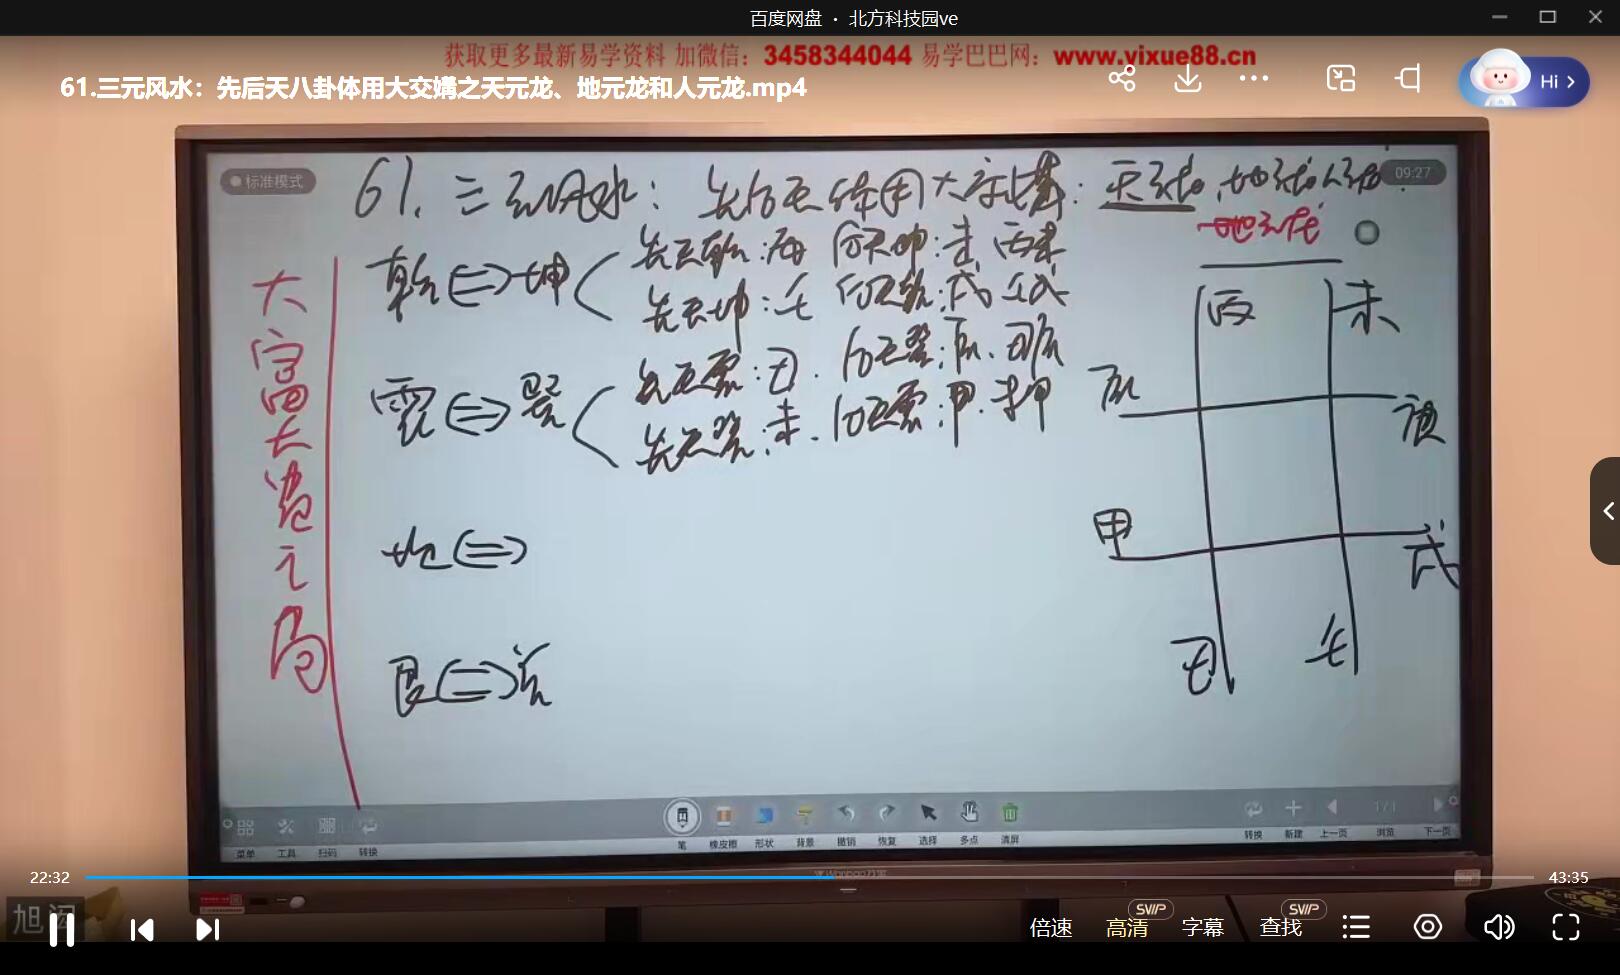 百度网盘 · 北方科技园ve
获取更多最新易学资料 加微信：3458344044 易学巴巴网：www.yixue88.cn
61.三元风水：先后天八卦体用大交媾之天元龙、地元龙和人元龙.mp4
Hi
标准模式
09:27
61.三元风水：先后天体用大交媾：天元龙、地元龙人元龙
地元龙
大富大贵之局
乾⇔坤
先天乾：丙 后天坤：未 丙未
先天坤：壬 后天乾：戌 壬戌
震⇔巽
先天震：丑
后天震：甲
先天巽：未
艮⇔兑
丙
未
甲
戌
丑
壬
菜单
工具
扫码
转换
笔
橡皮擦
形状
背景
撤销
恢复
选择
多点
清屏
转换
新建
上一页
1/1
浏览
下一页
22:32
43:35
倍速
高清
SVIP
字幕
查找
SVIP